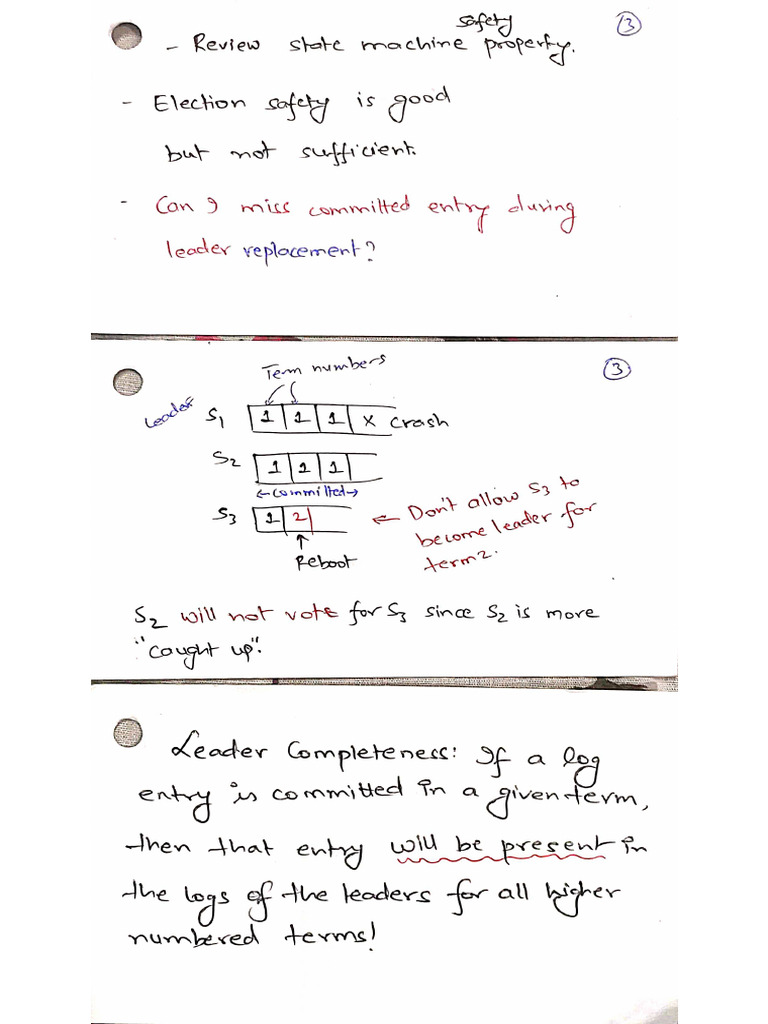 safety
③
- Review state machine property.
- Election safety is good
but not sufficient.
- Can I miss committed entry during
leader replacement?
Term numbers
③
Leader S1 1 1 1 x crash
S2 1 1 1
←committed→
S3 1 2 ← Don't allow S3 to
become leader for
term 2.
↑
Reboot
S2 will not vote for S3 since S2 is more
"caught up".
Leader Completeness: If a log
entry is committed in a given term,
then that entry will be present in
the logs of the leaders for all higher
numbered terms!